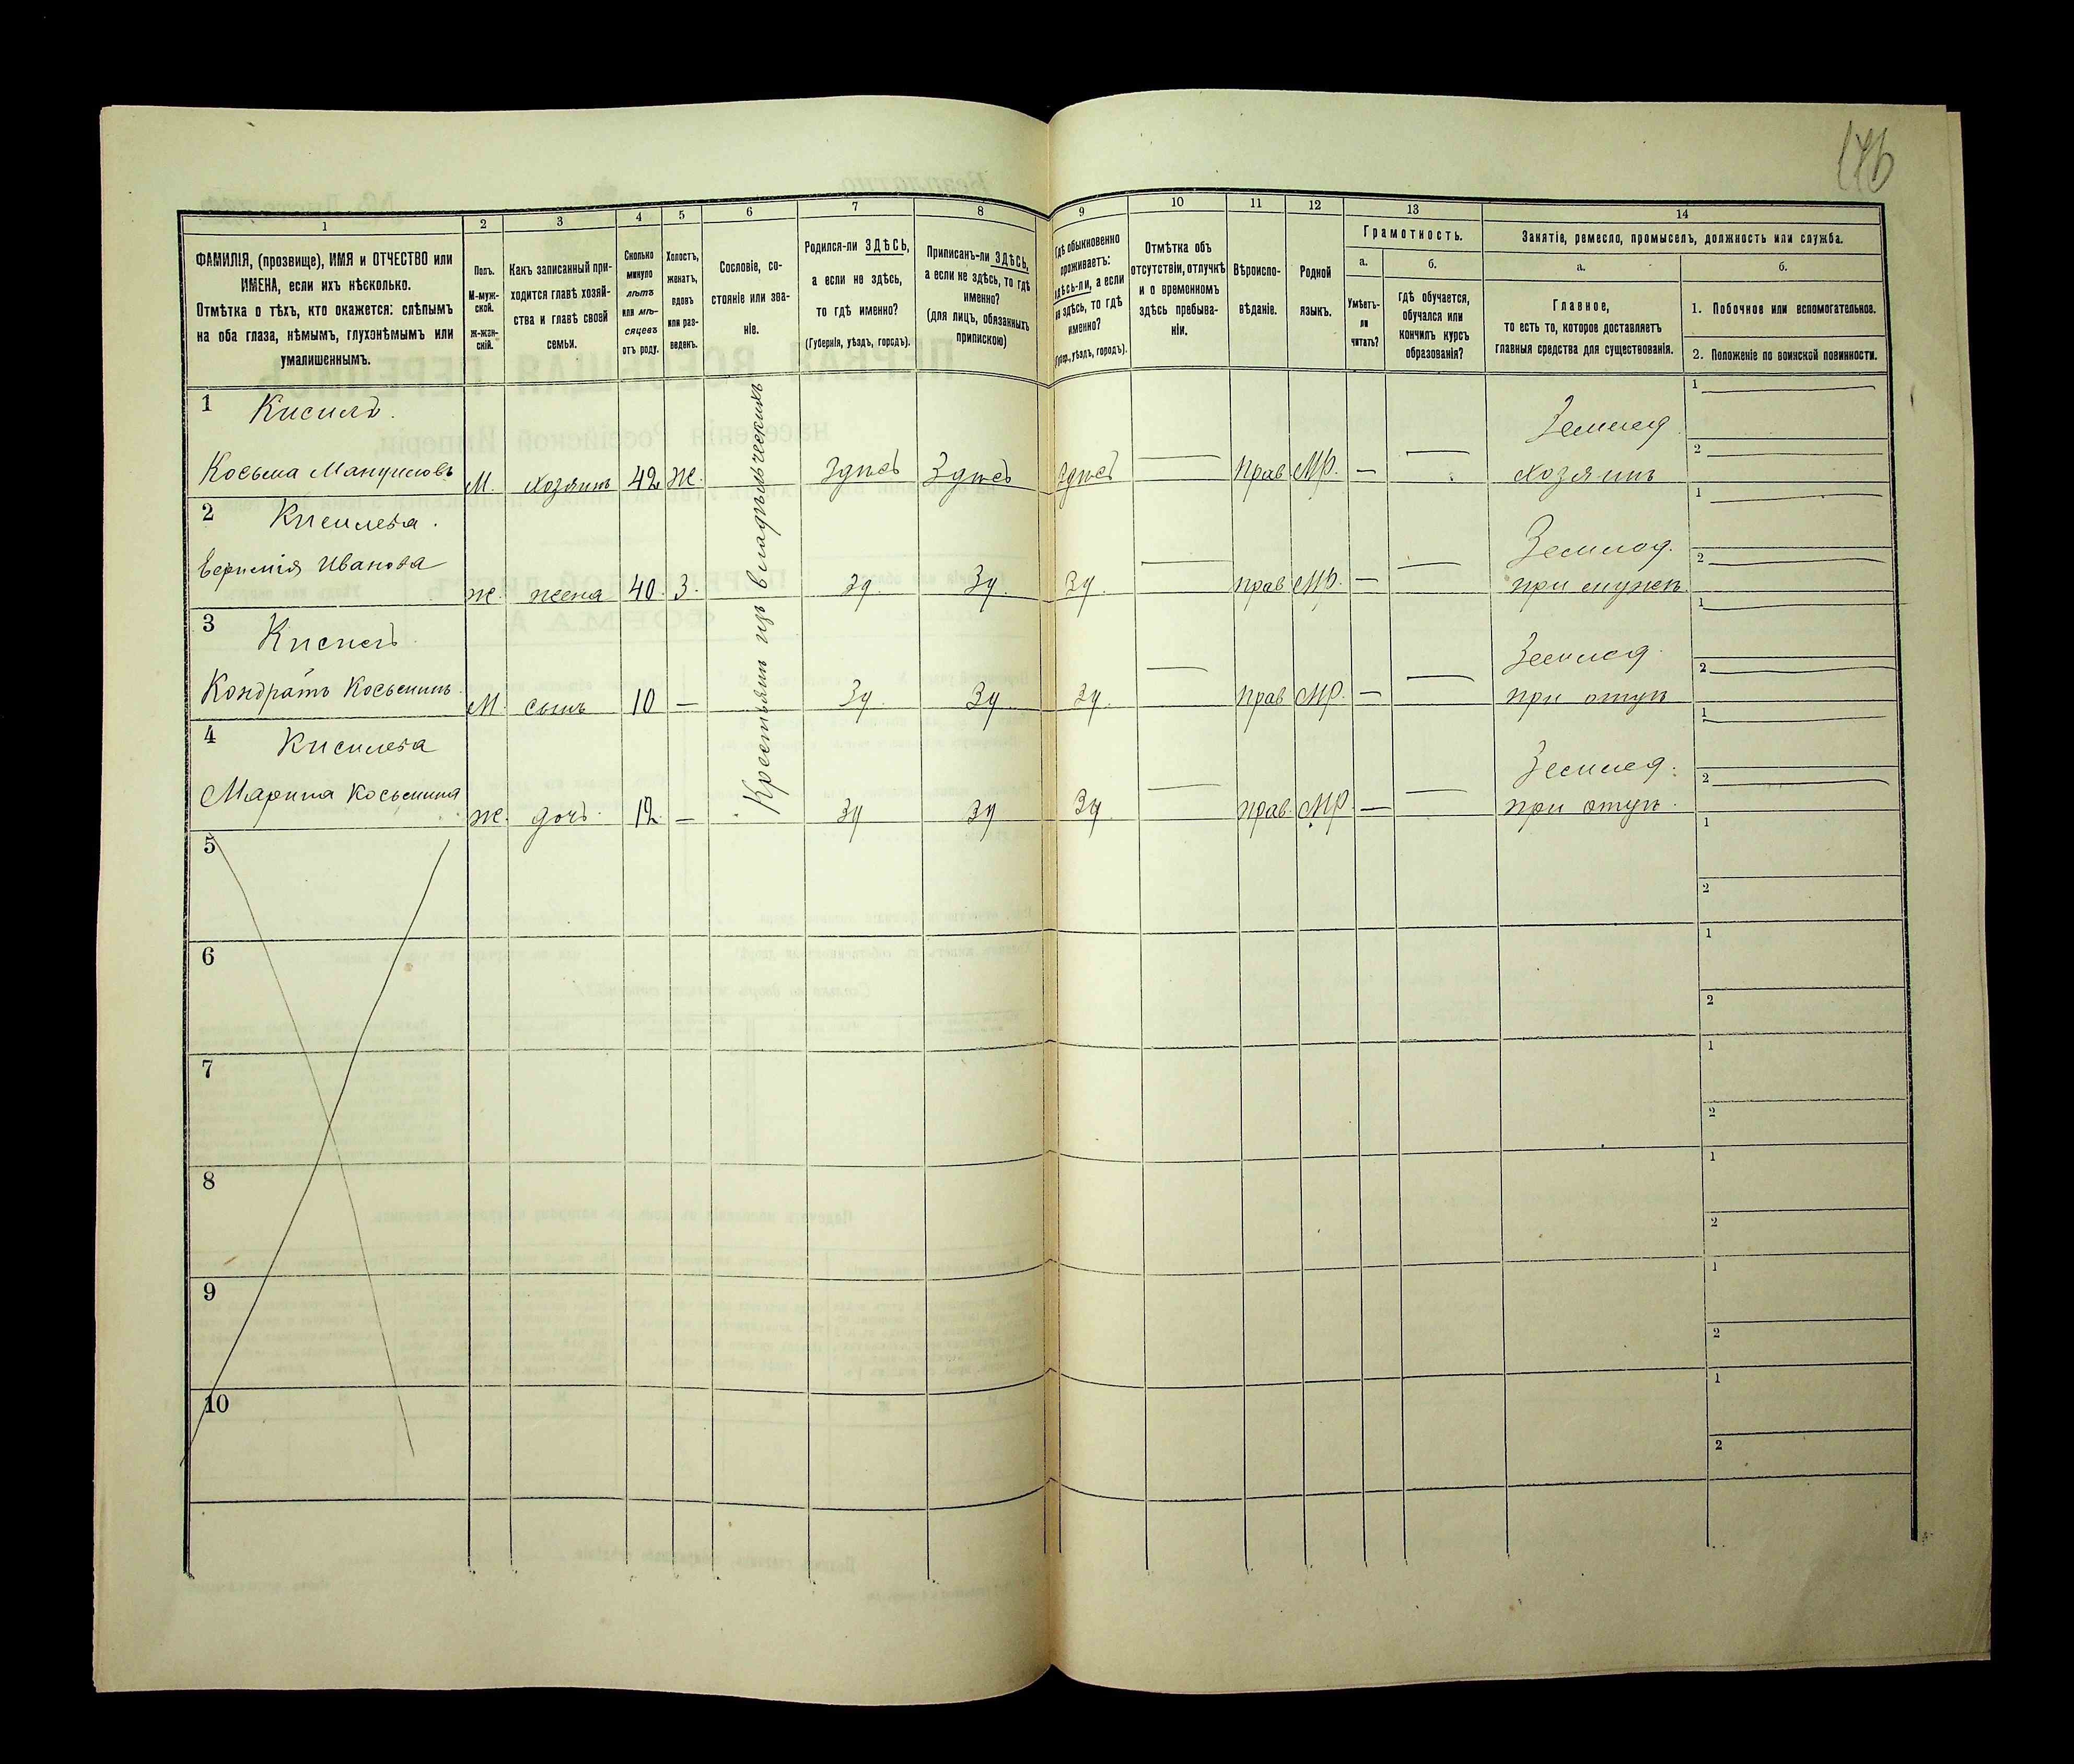 176
1 2 3 4 5 6 7 8 9 10 11 12 13 14
ФАМИЛІЯ, (прозвище), ИМЯ и ОТЧЕСТВО или
ИМЕНА, если ихъ нѣсколько.
Отмѣтка о тѣхъ, кто окажется: слѣпымъ
на оба глаза, нѣмымъ, глухонѣмымъ или
умалишеннымъ.
Полъ.
М-муж-
ской.
Ж-жен-
скій.
Какъ записанный при-
ходится главѣ хозяй-
ства и главѣ своей
семьи.
Сколько
минуло
лѣтъ
или мѣ-
сяцевъ
отъ роду.
Холостъ,
женатъ,
вдовъ
или раз-
веденъ.
Сословіе, со-
стояніе или зва-
ніе.
Родился-ли ЗДѢСЬ,
а если не здѣсь,
то гдѣ именно?
(Губернія, уѣздъ, городъ).
Приписанъ-ли ЗДѢСЬ,
а если не здѣсь, то гдѣ
именно?
(для лицъ, обязанныхъ
припискою)
Гдѣ обыкновенно
проживаетъ:
здѣсь-ли, а если
не здѣсь, то гдѣ
именно?
(Губер., уѣздъ, городъ).
Отмѣтка объ
отсутствіи, отлучкѣ
и о временномъ
здѣсь пребыва-
ніи.
Вѣроиспо-
вѣданіе.
Родной
языкъ.
Грамотность.
а.
Умѣетъ-
ли
читать?
б.
гдѣ обучается,
обучался или
кончилъ курсъ
образованія?
Занятіе, ремесло, промыселъ, должность или служба.
а.
Главное,
то есть то, которое доставляетъ
главныя средства для существованія.
б.
1. Побочное или вспомогательное.
2. Положеніе по воинской повинности.
Крестьянъ изъ владѣльческихъ
1 Кисиль. Землед. 1
Косьма Мануиловъ М. хозяинъ 42 Ж. Здѣсь Здѣсь Здѣсь — Прав. МР. — — хозяинъ 2
2 Кисилева. Землед. 1
Иванова Ж. жена 40. З. Зд. Зд. Зд. — Прав. МР. — — при мужѣ. 2
3 Кисиль Землед. 1
Кондратъ Косьминъ. М. сынъ 10 — Зд. Зд. Зд. — Прав. МР. — — при отцѣ 2
4 Кисилева Землед. 1
Марина Косьмина Ж. дочь. 12. — Зд Зд Зд — Прав. МР. — — при отцѣ. 2
5 1
2
6 1
2
7 1
2
8 1
2
9 1
2
10 1
2